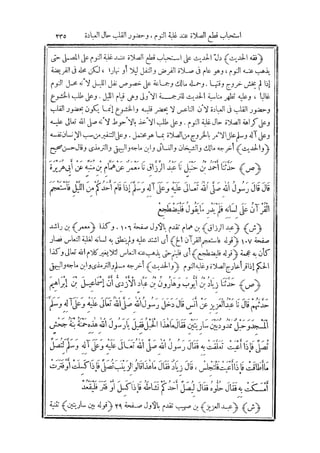 استحباب قطع الصلاة عند غلبة النوم ، وحضور القلب حال العبادة ٢٣٥
﴿فقه الحديث﴾ دل الحديث على استحباب قطع الصلاة عند غلبة النوم على المصلى حتى
يذهب عنه النوم ، وهو عام فى صلاة الفرض والنفل ليلا أو نهارا ، لكن محله فى الفريضة
إذا لم يخش خروج وقتها . وحمله مالك وجماعة على خصوص نفل الليل لأنه محل النوم
غالبا ، وعليه تظهر مناسبة الحديث للترجمة الأولى وهى قيام الليل . وعلى طلب الخشوع
وحضور القلب فى العبادة لأن الناعس لا يحضر قلبه والخشوع إنما يكون بحضور القلب
وعلى كراهة الصلاة حال غلبة النوم . وعلى طلب الأخذ بالأحوط لأنه صلى الله تعالى عليه
وعلى آله وسلم علل الأمر بالخروج من الصلاة بما هو محتمل . وعلى التنفير من سب الإنسان نفسه
﴿والحديث﴾ أخرجه مالك والشيخان والنسائى وابن ماجه والبيهقى والترمذى وقال حسن صحيح
﴿ص﴾ حدثنا أحمد بن حنبل نا عبد الرزاق نا معمر عن همام بن منبه عن أبى هريرة
قال قال رسول الله صلى الله تعالى عليه وعلى آله وسلم إذا قام أحدكم من الليل فاستعجم
القرآن على لسانه فلم يدر ما يقول فليضطجع
﴿ش﴾ ﴿عبد الرزاق﴾ بن همام تقدم بالأول صفحة ١٠٦ . وكذا ﴿معمر﴾ بن راشد
صفحة ١٠٧ ﴿قوله فاستعجم القرآن الخ﴾ أى اشتد عليه ولم ينطلق به لسانه لغلبة النعاس فصار
كأن به عجمة ﴿قوله فليضطجع﴾ أى فلينم حتى يذهب عنه النعاس لئلا يغير كلام الله تعالى وكذا
الحكم إذا كان خارج الصلاة وغلبه النوم ﴿والحديث﴾ أخرجه مسلم والترمذى وابن ماجه والبيهقى
﴿ص﴾ حدثنا زياد بن أيوب وهارون بن عباد الأزدى أن إسماعيل بن إبراهيم
حدثهم قال نا عبد العزيز عن أنس قال دخل رسول الله صلى الله تعالى عليه وعلى آله وسلم
المسجد وحبل ممدود بين ساريتين فقال ما هذا الحبل فقيل يا رسول الله هذه حمنة بنت جحش
تصلى فإذا أعيت تعلقت به فقال رسول الله صلى الله تعالى عليه وعلى آله وسلم لتصل
ما أطاقت فإذا أعيت فلتجلس ، قال زياد فقال ما هذا قالوا لزينب تصلى فإذا كسلت أو فترت
أمسكت به فقال حلوه فقال ليصل أحدكم نشاطه فإذا كسل أو فتر فليقعد
﴿ش﴾ ﴿عبد العزيز﴾ بن صهيب تقدم بالأول صفحة ٢٩ ﴿قوله بين ساريتين﴾ تثنية